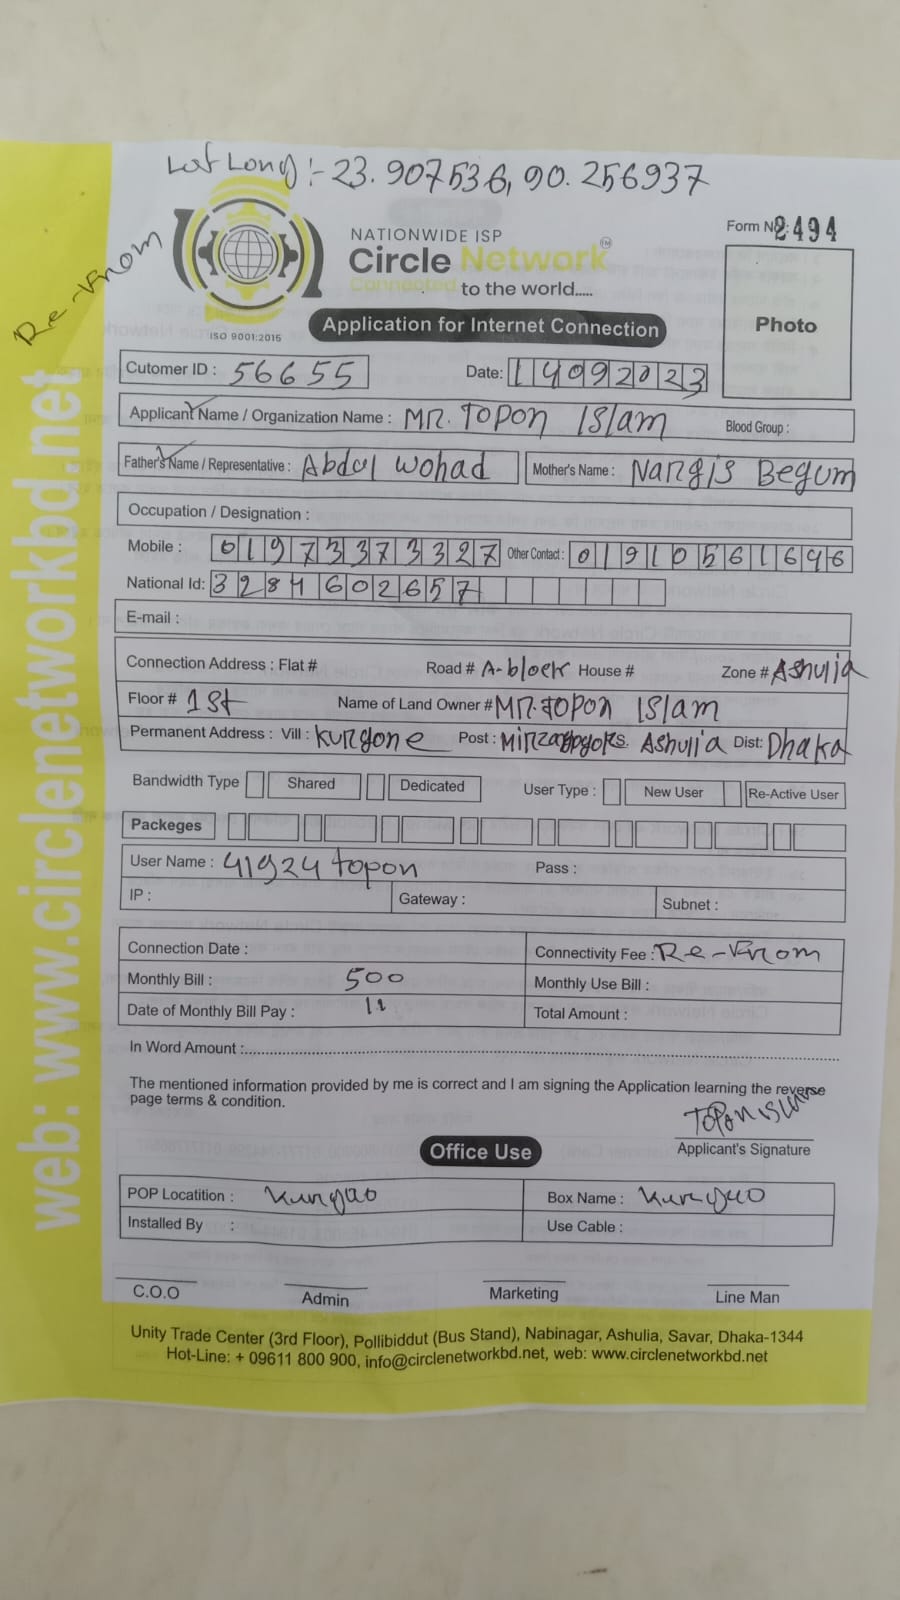 Lat Long:- 23.907536, 90.256937
Re-From
NATIONWIDE ISP
Form No: 2494
Circle Network TM
Connected to the world.....
ISO 9001:2015
Application for Internet Connection
Photo
Cutomer ID : 56655 Date: 14092023
Applicant Name / Organization Name : MR. TOPON ISlam Blood Group :
Father's Name / Representative : Abdul Wohad Mother's Name : Nargis Begum
Occupation / Designation :
Mobile : 01973373327 Other Contact : 01910561696
National Id: 3284602657
E-mail :
Connection Address : Flat # Road # A-block House # Zone # Ashulia
Floor # 1st Name of Land Owner # MR. TOPON ISlam
Permanent Address : Vill : Post : Ashulia Dist: Dhaka
Bandwidth Type Shared Dedicated User Type : New User Re-Active User
Packeges
User Name : 41924topon Pass :
IP : Gateway : Subnet :
Connection Date : Connectivity Fee : Re-From
Monthly Bill : 500 Monthly Use Bill :
Date of Monthly Bill Pay : Total Amount :
In Word Amount :
The mentioned information provided by me is correct and I am signing the Application learning the reverse
page terms & condition.
Topon islam
Applicant's Signature
Office Use
POP Locatition : Box Name :
Installed By : Use Cable :
C.O.O Admin Marketing Line Man
Unity Trade Center (3rd Floor), Pollibiddut (Bus Stand), Nabinagar, Ashulia, Savar, Dhaka-1344
Hot-Line: + 09611 800 900, info@circlenetworkbd.net, web: www.circlenetworkbd.net
web: www.circlenetworkbd.net